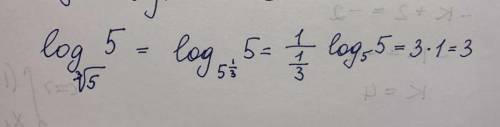 - k + 2 = -2
log_{∛5} 5 = log_{5^{1/3}} 5 = \frac{1}{\frac{1}{3}} log_5 5 = 3 · 1 = 3
k = 4